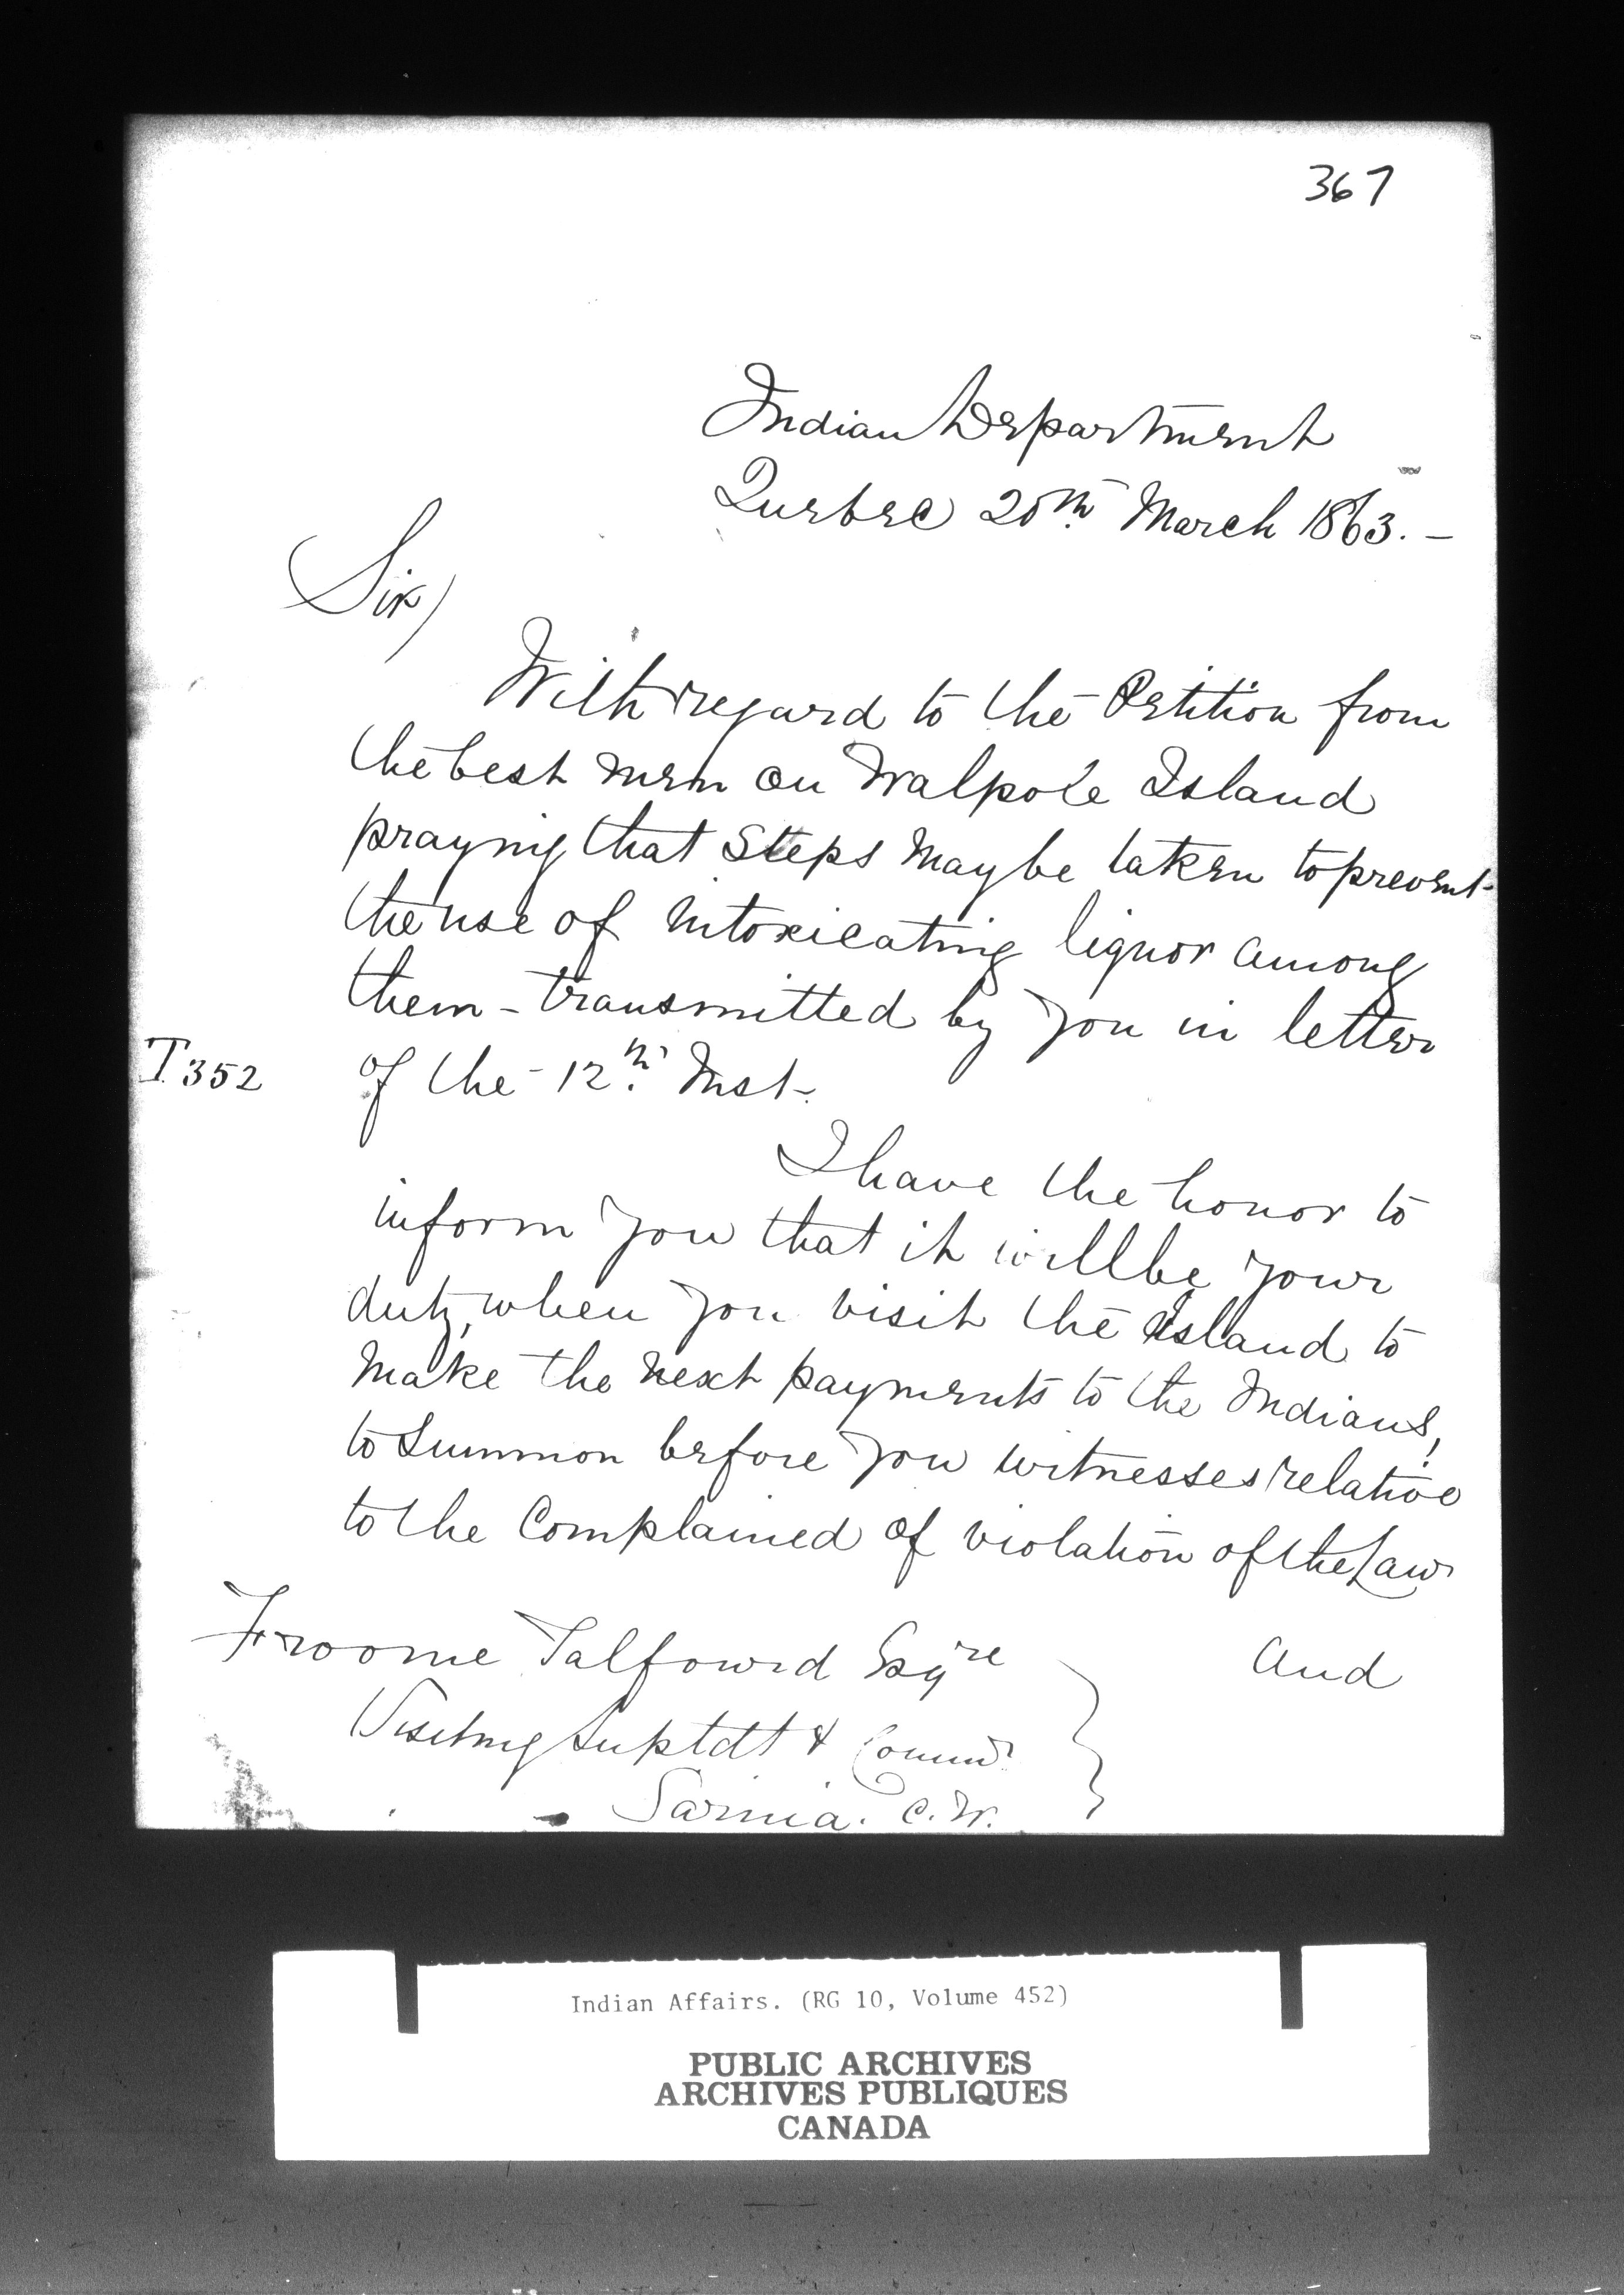 367
Indian Department
Quebec 20th March 1863. –
Sir,
With regard to the Petition from
the best men on Walpole Island
praying that Steps may be taken to prevent
the use of intoxicating liquor among
them – transmitted by you in letter
T 352 of the 12th Inst.
I have the honor to
inform you that it will be your
duty, when you visit the Island to
make the next payments to the Indians,
to Summon before you witnesses relative
to the Complained of violation of the Law
and
Froome Talfourd Esqre
Visiting Suptdt & Commr
Sarnia. C.W.
Indian Affairs. (RG 10, Volume 452)
PUBLIC ARCHIVES
ARCHIVES PUBLIQUES
CANADA